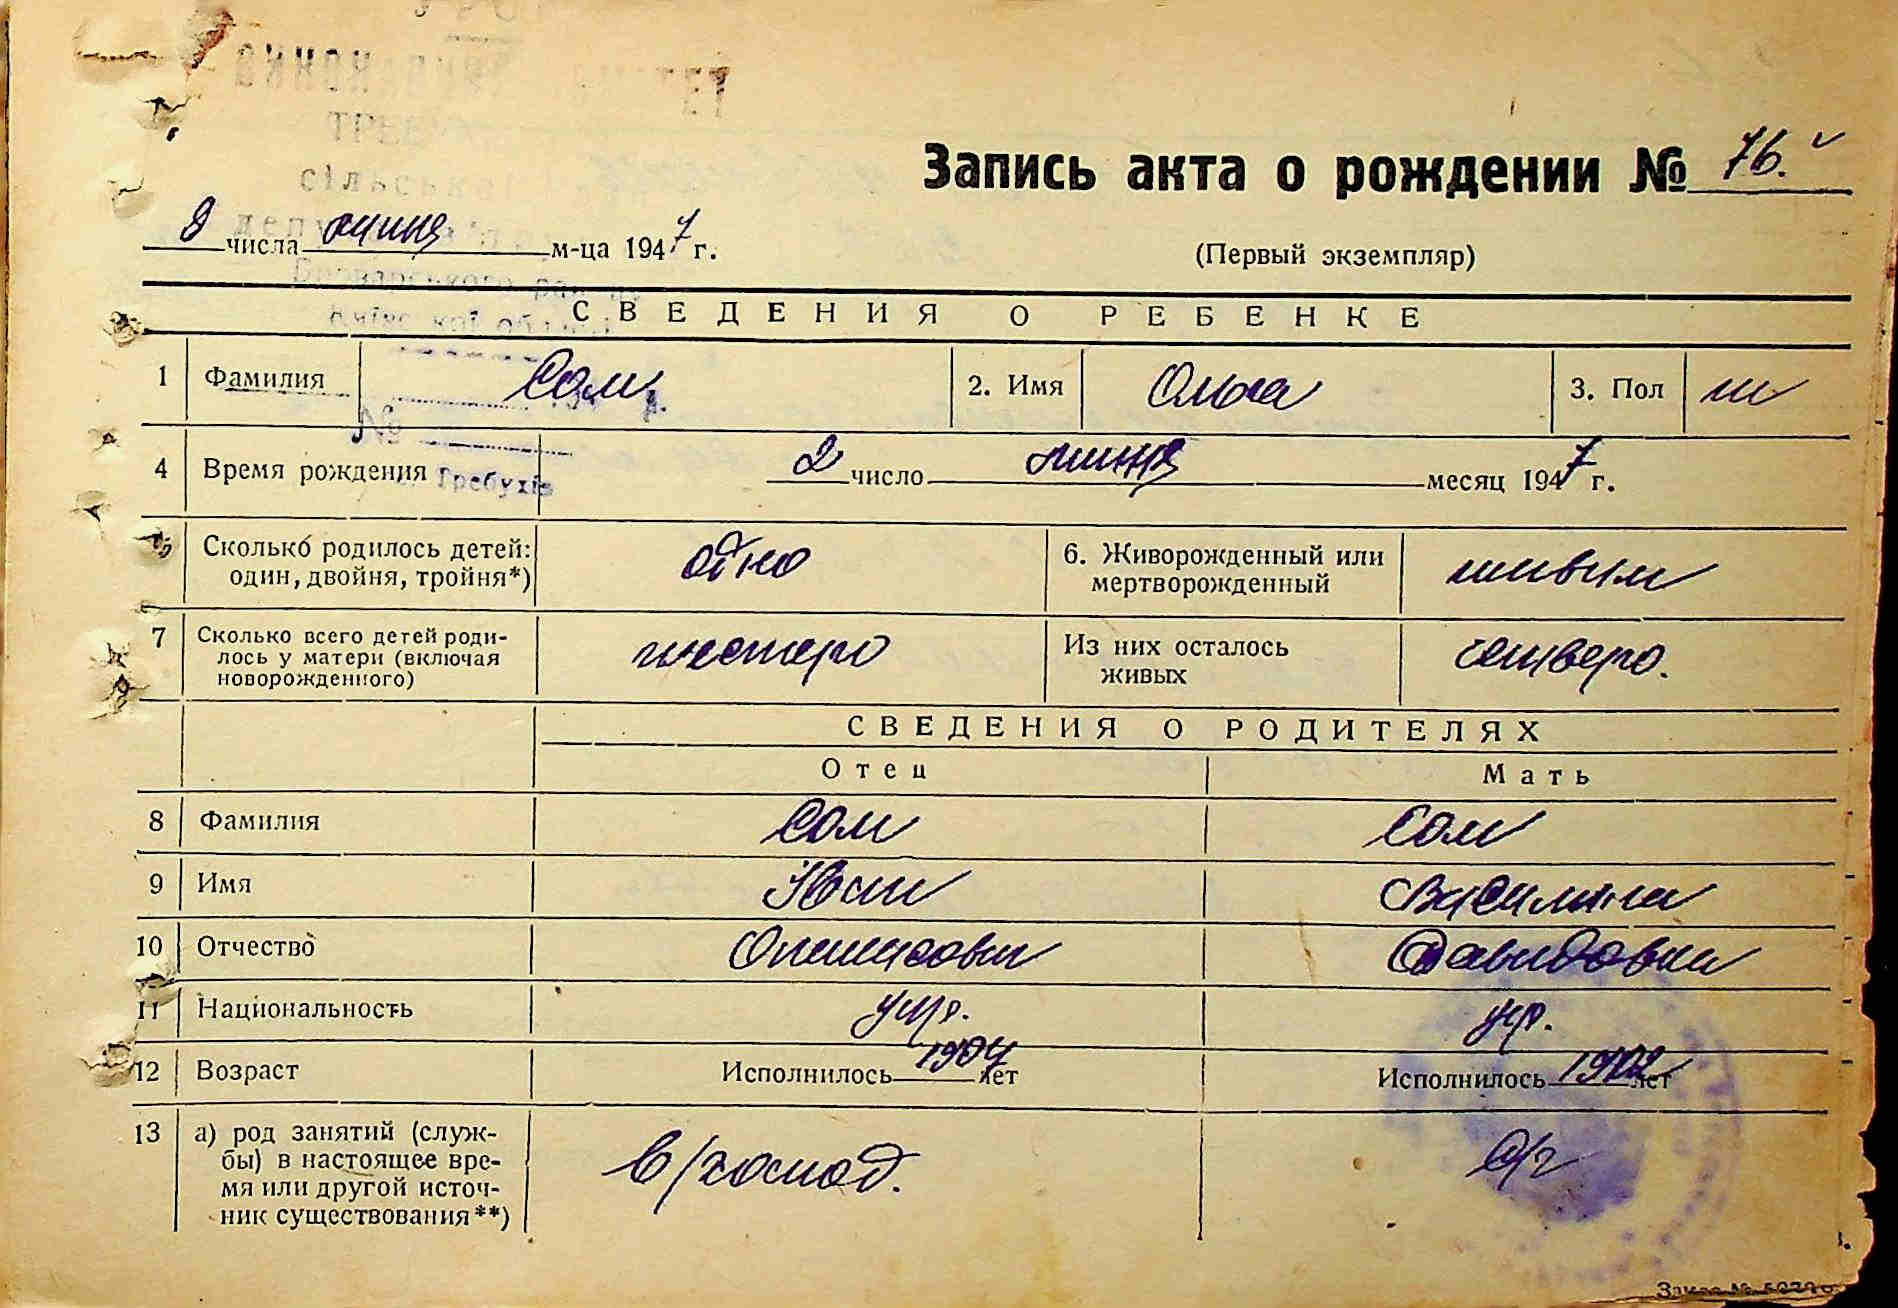 ТРЕБУ
сільської
Броварського району
Київської області
Запись акта о рождении № 76.
9 числа липня м-ца 1947 г.
(Первый экземпляр)
СВЕДЕНИЯ О РЕБЕНКЕ
1 Фамилия Сом 2. Имя Ольга 3. Пол ж
№
4 Время рождения 2 число липня месяц 1947 г.
Требухів
5 Сколько родилось детей: один, двойня, тройня*) одно 6. Живорожденный или мертворожденный живим
7 Сколько всего детей роди-
лось у матери (включая
новорожденного) шестеро Из них осталось живых четверо.
СВЕДЕНИЯ О РОДИТЕЛЯХ
Отец Мать
8 Фамилия Сом Сом
9 Имя Іван Василина
10 Отчество Опанасович Давидовна
11 Национальность укр. укр.
12 Возраст Исполнилось 1904 лет Исполнилось 1902 лет
13 а) род занятий (служ-
бы) в настоящее вре-
мя или другой источ-
ник существования**)
в/